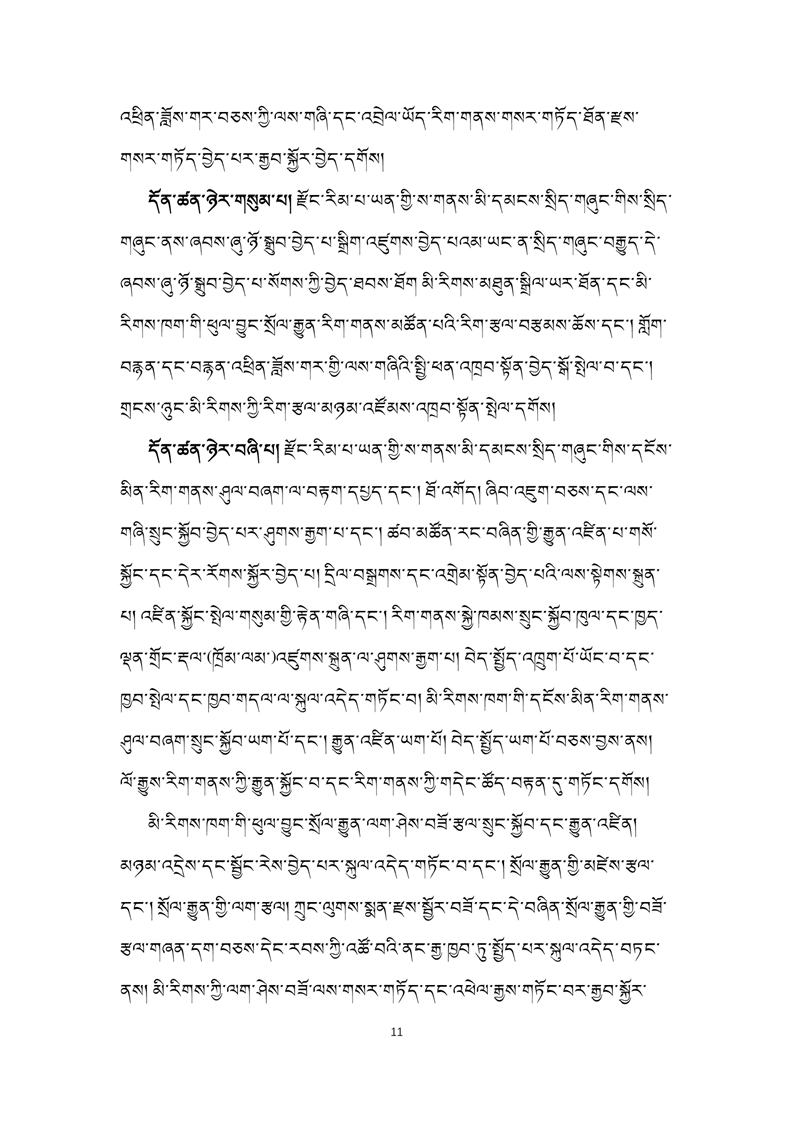 འཕྲིན་ཟློས་གར་བཅས་ཀྱི་ལས་གཞི་དང་འབྲེལ་ཡོད་རིག་གནས་གསར་གཏོད་ཐོན་རྫས་
གསར་གཏོད་བྱེད་པར་རྒྱབ་སྐྱོར་བྱེད་དགོས།
དོན་ཚན་ཉེར་གསུམ་པ། རྫོང་རིམ་པ་ཡན་གྱི་ས་གནས་མི་དམངས་སྲིད་གཞུང་གིས་སྲིད་
གཞུང་ནས་ཞབས་ཞུ་ཉོ་སྒྲུབ་བྱེད་པ་སྒྲིག་འཛུགས་བྱེད་པའམ་ཡང་ན་སྲིད་གཞུང་བརྒྱུད་དེ་
ཞབས་ཞུ་ཉོ་སྒྲུབ་བྱེད་པ་སོགས་ཀྱི་བྱེད་ཐབས་ཐོག མི་རིགས་མཐུན་སྒྲིལ་ཡར་ཐོན་དང་མི་
རིགས་ཁག་གི་ཕུལ་བྱུང་སྲོལ་རྒྱུན་རིག་གནས་མཚོན་པའི་རིག་རྩལ་བརྩམས་ཆོས་དང་། གློག་
བརྙན་དང་བརྙན་འཕྲིན་ཟློས་གར་གྱི་ལས་གཞིའི་སྤྱི་ཕན་འཁྲབ་སྟོན་བྱེད་སྒོ་སྤེལ་བ་དང་།
གྲངས་ཉུང་མི་རིགས་ཀྱི་རིག་རྩལ་མཉམ་འཛོམས་འཁྲབ་སྟོན་སྤེལ་དགོས།
དོན་ཚན་ཉེར་བཞི་པ། རྫོང་རིམ་པ་ཡན་གྱི་ས་གནས་མི་དམངས་སྲིད་གཞུང་གིས་དངོས་
མིན་རིག་གནས་ཤུལ་བཞག་ལ་བརྟག་དཔྱད་དང་། ཐོ་འགོད། ཞིབ་འཇུག་བཅས་དང་ལས་
གཞི་སྲུང་སྐྱོབ་བྱེད་པར་ཤུགས་རྒྱག་པ་དང་། ཚབ་མཚོན་རང་བཞིན་གྱི་རྒྱུན་འཛིན་པ་གསོ་
སྐྱོང་དང་དེར་རོགས་སྐྱོར་བྱེད་པ། དྲིལ་བསྒྲགས་དང་འགྲེམ་སྟོན་བྱེད་པའི་ལས་སྟེགས་སྐྲུན་
པ། འཛིན་སྐྱོང་སྤེལ་གསུམ་གྱི་རྟེན་གཞི་དང་། རིག་གནས་སྐྱེ་ཁམས་སྲུང་སྐྱོབ་ཁུལ་དང་ཁྱད་
ལྡན་གྲོང་རྡལ་(ཁྲོམ་ལམ་)འཛུགས་སྐྲུན་ལ་ཤུགས་རྒྱག་པ། བེད་སྤྱོད་འཁྲུག་པོ་ཡོང་བ་དང་
ཁྱབ་སྤེལ་དང་ཁྱབ་གདལ་ལ་སྐུལ་འདེད་གཏོང་བ། མི་རིགས་ཁག་གི་དངོས་མིན་རིག་གནས་
ཤུལ་བཞག་སྲུང་སྐྱོབ་ཡག་པོ་དང་། རྒྱུན་འཛིན་ཡག་པོ། བེད་སྤྱོད་ཡག་པོ་བཅས་བྱས་ནས།
ལོ་རྒྱུས་རིག་གནས་ཀྱི་རྒྱུན་སྐྱོང་བ་དང་རིག་གནས་ཀྱི་གདེང་ཚོད་བརྟན་དུ་གཏོང་དགོས།
མི་རིགས་ཁག་གི་ཕུལ་བྱུང་སྲོལ་རྒྱུན་ལག་ཤེས་བཟོ་རྩལ་སྲུང་སྐྱོབ་དང་རྒྱུན་འཛིན།
མཉམ་འདྲེས་དང་སྦྱོང་རེས་བྱེད་པར་སྐུལ་འདེད་གཏོང་བ་དང་། སྲོལ་རྒྱུན་གྱི་མཛེས་རྩལ་
དང་། སྲོལ་རྒྱུན་གྱི་ལག་རྩལ། ཀྲུང་ལུགས་སྨན་རྫས་སྦྱོར་བཟོ་དང་དེ་བཞིན་སྲོལ་རྒྱུན་གྱི་བཟོ་
རྩལ་གཞན་དག་བཅས་དེང་རབས་ཀྱི་འཚོ་བའི་ནང་རྒྱ་ཁྱབ་ཏུ་སྤྱོད་པར་སྐུལ་འདེད་བཏང་
ནས། མི་རིགས་ཀྱི་ལག་ཤེས་བཟོ་ལས་གསར་གཏོད་དང་འཕེལ་རྒྱས་གཏོང་བར་རྒྱབ་སྐྱོར་
11